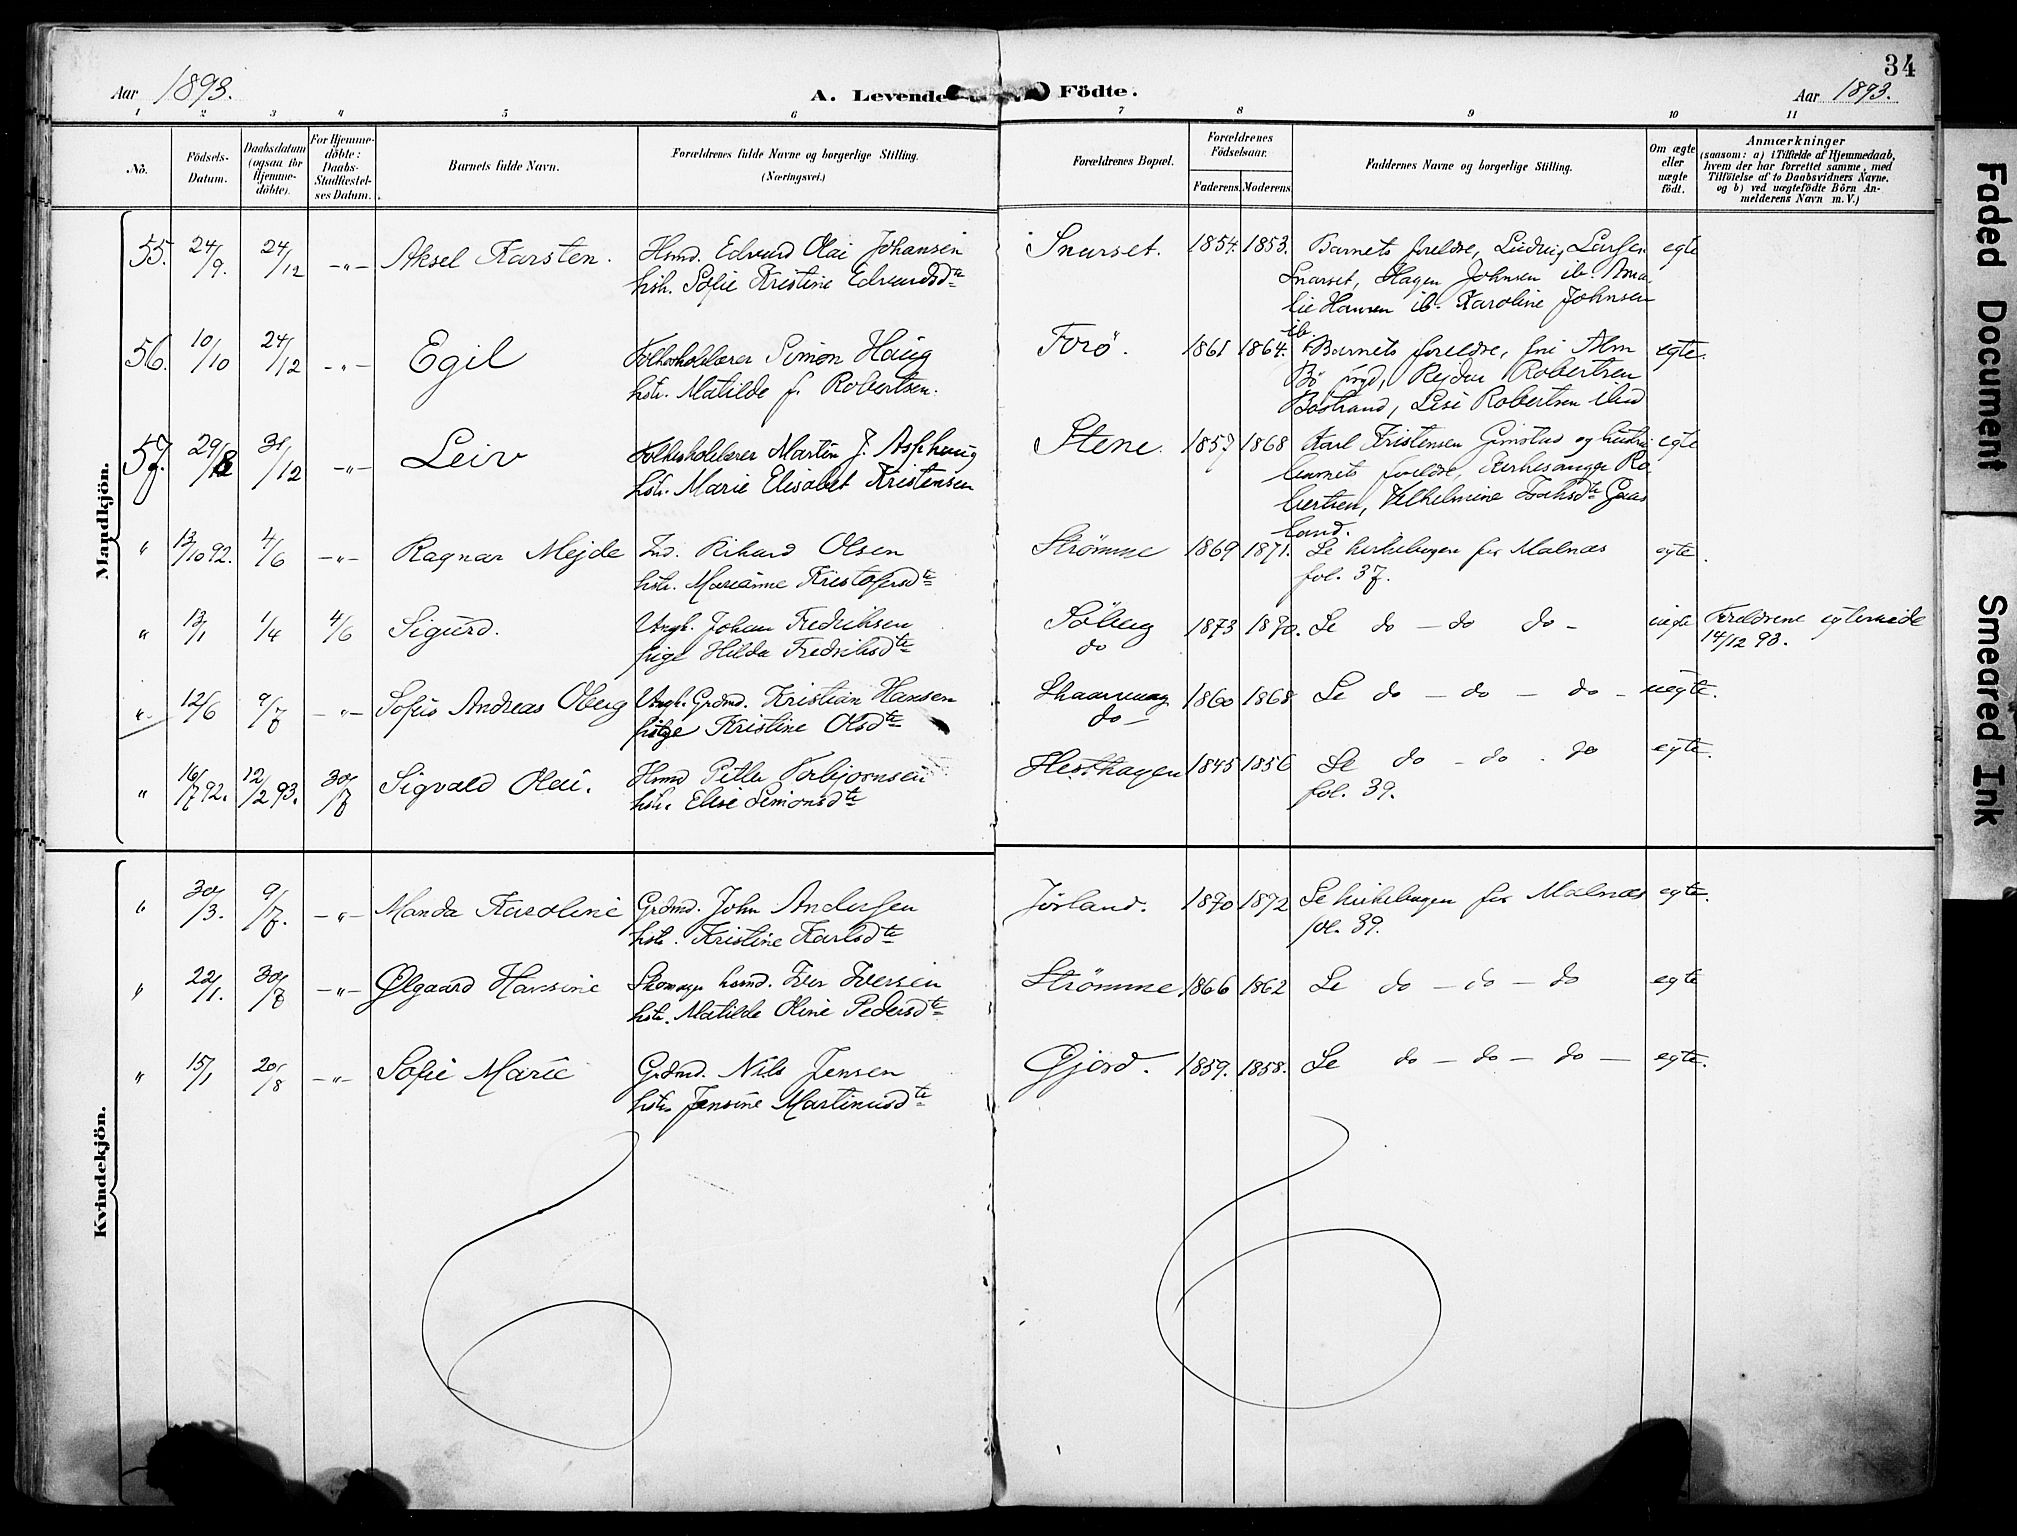 34
Aar 1893.
A. Levende
Födte.
Aar 1893.
1 2 3 4 5 6 7 8 9 10 11
No.
Födsels-Datum.
Daabsdatum (ogsaa for Hjemme-döbte).
For Hjemme-döbte: Daabs-Stadfæstel-ses Datum.
Barnets fulde Navn.
Forældrenes fulde Navne og borgerlige Stilling.
(Næringsvei.)
Forældrenes Bopæl.
Forældrenes Födselsaar.
Faderens. Moderens.
Faddernes Navne og borgerlige Stilling.
Om ægte eller uægte födt.
Anmærkninger
(saasom: a) i Tilfælde af Hjemmedaab, hvem der har forrettet samme, med Tilföielse af to Daabsvidners Navne, og b) ved uægtefödte Börn An-melderens Navn m. V.)
Mandkjön.
55. 24/9. 24/12 -"- Aksel Karsten. Hsmd. Edvard Olai Johansen Snarset. 1854. 1853. Barnets foreldre, Ludvig Larsen egte
hstr. Sofie Kristine Edvardsdtr Snarset, Hagen Johnsen ib. Ama-
lie Hansen ib. Karoline Johnsen
ib.
56. 10/10 24/12 -"- Egil Folkeskolelærer Simon Haug Forö. 1861 1864. Barnets foreldre, egte.
hstr. Matilde f. Robertsen. Bö Rejdar Robertsen
Böstrand, Lise Robertsen
57. 29/8 31/12 -"- Leiv Folkeskolelærer Martin J. Asphaug Stene. 1857 1868 Karl Kristensen Gimstad og hustru egte
hstr. Marie Elisabet Kristensen barnets foreldre, Kirkesanger Ro-
bertsen, Vilhelmine Gaas
land.
" 13/10 92. 4/6 -"- Ragnar Mejde Ind. Rikard Olsen Strömme 1869 1871. Se kirkebogen for Malnæs egte.
hstr. Marianne Kristofersdtr fol. 37.
" 13/1 1/4 4/6 Sigurd. Ungk. Johan Fredriksen Söberg 1873 1870. Se do - do do - uegte Foreldrene egteviede
pige Hilda Fredriksdtr do 14/12 93.
" 12/6 9/7 -"- Sofus Andreas Oberg Ungk. Grdmd. Kristian Hansen Skaarvaag 1860 1868 Se do - do - do - uegte.
pige Kristine Olsdtr do -
" 16/7 92. 12/2 93. 30/7 Sigvald Olai. Hsmd Petter Torbjornsen Hesthagen 1845 1856 Se do - do - do egte.
hstr. Elise Simonsdtr fol. 39.
Kvindekjön.
" 30/3. 9/7. -"- Manda Karoline Grdmd. John Andersen Jörland. 1870 1872 Se kirkebogen for Malnæs egte.
hstr. Kristine Karlsdtr fol. 39.
" 22/1. 30/7 -"- Ølgaard Hansine Skomager hsmd. Iver Iversen Strömme 1866 1862 Se do - do - do egte
hstr. Matilde Oline Pedersdtr
" 15/1 20/8 -"- Sofie Marie Grdmd. Nils Jensen Gjerd. 1859. 1858. Se do - do - do - egte.
hstr Jensine Martinusdtr
Faded Document
Smeared Ink